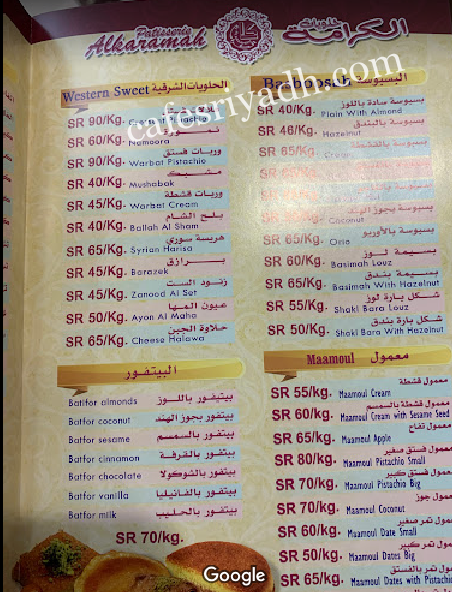 Patisserie
Alkaramah
حلويات
الكرامة
Western Sweet الحلويات الشرقية
SR 90/Kg.
SR 60/Kg. Namoora
وربات فستق
SR 90/Kg. Warbat Pistachio
مشبك
SR 40/Kg. Mushabak
وربات قشطة
SR 45/Kg. Warbat Cream
بلح الشام
SR 40/Kg. Ballah Al Sham
هريسة سوري
SR 65/Kg. Syrian Harisa
برازق
SR 45/Kg. Barazek
زنود الست
SR 45/Kg. Zanood Al Set
عيون المها
SR 50/Kg. Ayon Al Maha
حلاوة الجبن
SR 65/Kg. Cheese Halawa
البيتفور
Batifor almonds بيتيفور باللوز
Batfor coconut بيتفور بجوز الهند
Batfor sesame بيتفور بالسمسم
Batfor cinnamon بيتفور بالقرفة
Batfor chocolate بيتفور بالشوكولا
Batfor vanilla بيتفور بالفانيليا
Batfor milk بيتفور بالحليب
SR 70/kg.
Basboosah البسبوسة
بسبوسة سادة باللوز
SR 40/Kg. Plain With Almond
بسبوسة بالبندق
SR 46/Kg. Hazelnut
بسبوسة بالقشطة
SR 65/Kg. Cream
بسبوسة بجوز الهند
Coconut
بسبوسة بالأوريو
SR 65/Kg. Orio
بسيمة لوز
SR 60/Kg. Basimah Louz
بسيمة بندق
SR 65/Kg. Basimah With Hazelnut
شكل بارة لوز
SR 55/Kg. Shakl Bara Louz
شكل بارة بندق
SR 50/Kg. Shakl Bara With Hazelnut
Maamoul معمول
معمول قشطة
SR 55/kg. Maamoul Cream
معمول قشطة بالسمسم
SR 60/kg. Maamoul Cream with Sesame Seed
معمول تفاح
SR 65/Kg. Maamoul Apple
معمول فستق صغير
SR 80/kg. Maamoul Pistachio Small
معمول فستق كبير
SR 70/kg. Maamoul Pistachio Big
معمول جوز
SR 70/kg. Maamoul Coconut
معمول تمر صغير
SR 60/kg. Maamoul Date Small
معمول تمر كبير
SR 50/kg. Maamoul Dates Big
معمول تمر بالفستق
SR 65/kg. Maamoul Dates with Pistachio
cafesriyadh.com
Google